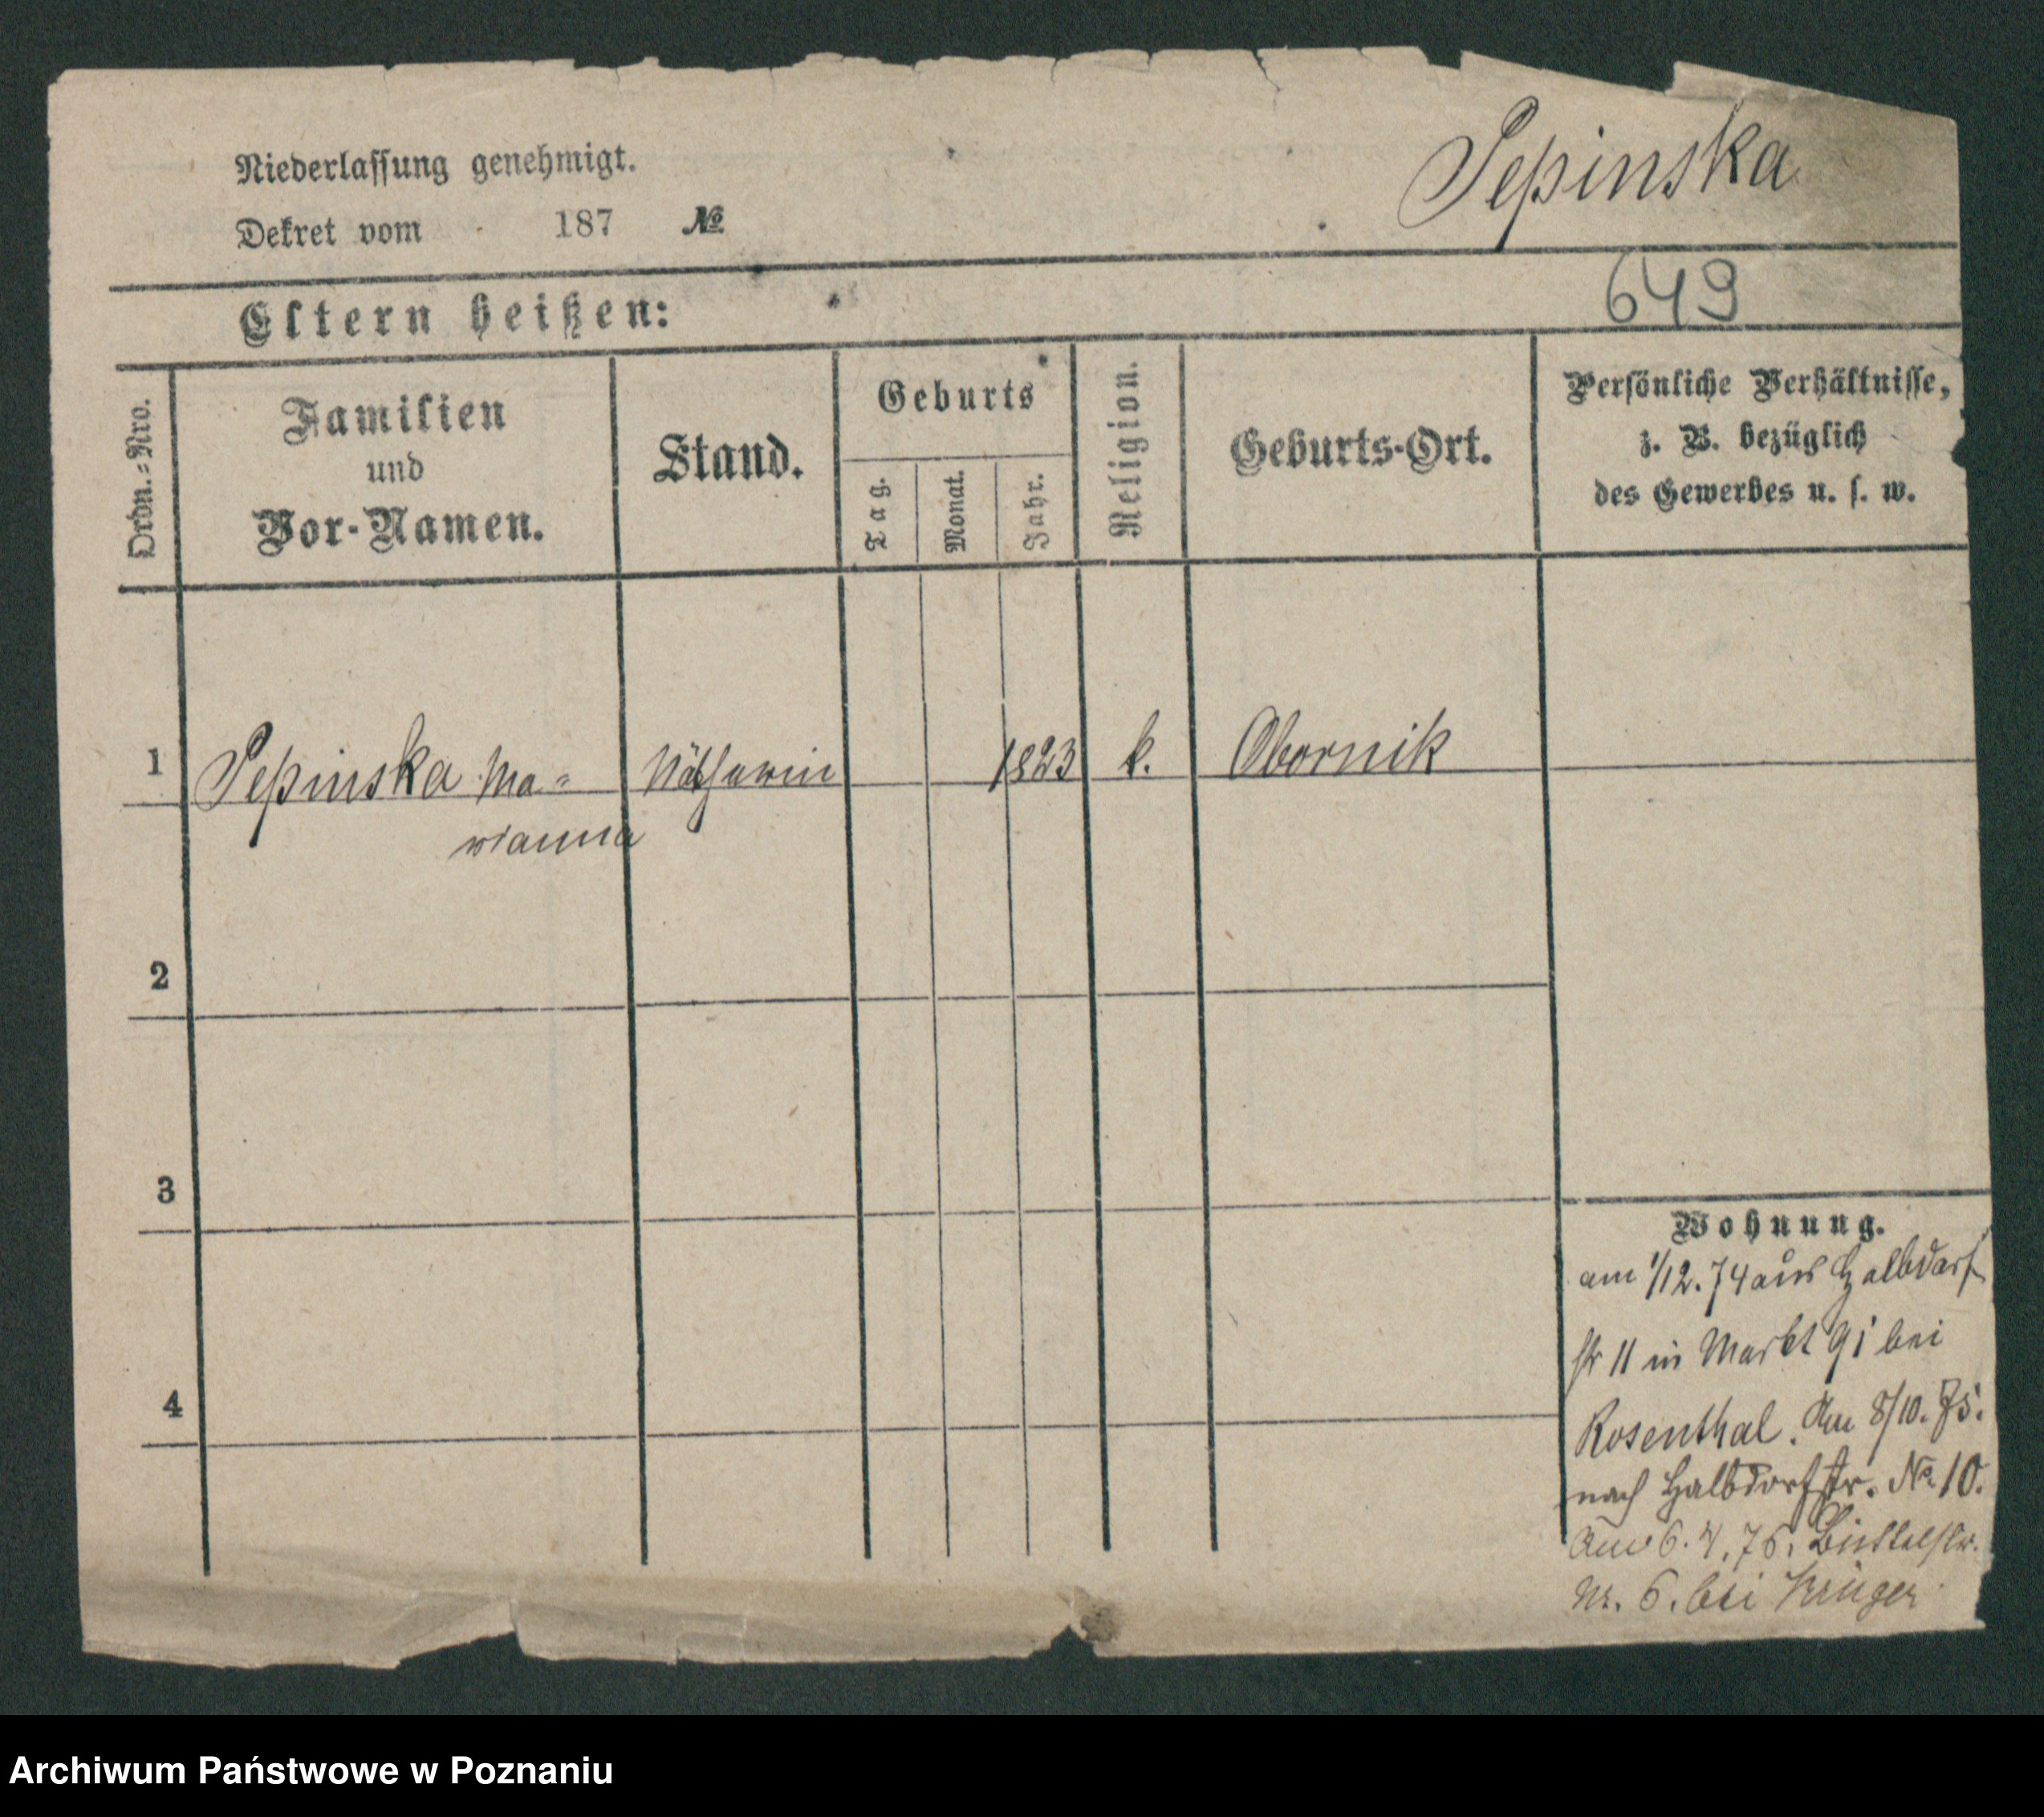 Niederlassung genehmigt.
Dekret vom 187 №
Pepinska
Eltern heißen:
649
Ordn.=Nro.
Familien
und
Vor-Namen.
Stand.
Geburts
Tag.
Monat.
Jahr.
Religion.
Geburts-Ort.
Persönliche Verhältnisse,
z. B. bezüglich
des Gewerbes u. s. w.
1 Pepinska Ma= Näthnerin 1823 k. Obornik
rianna
2
3
4
Wohnung.
am 1/12. 74 aus Halbdorf
str 11 in Markt 91 bei
Rosenthal. Am 8/10. 75.
nach Halbdorfstr. No. 10.
Am 6. 4. 76. Büttelstr.
Nr. 6. bei Krüger
Archiwum Państwowe w Poznaniu